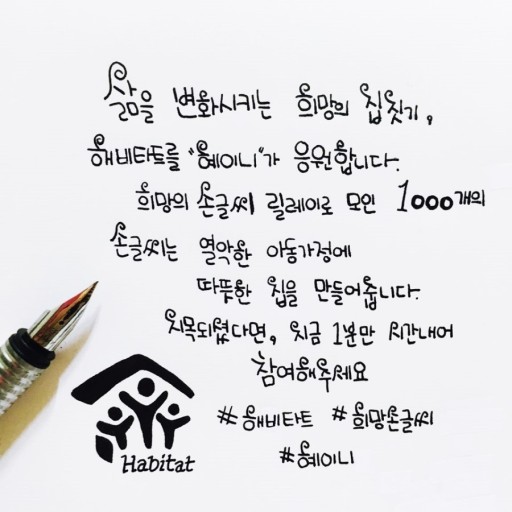 삶을 변화시키는 희망의 집짓기,
해비타트를 "혜이니"가 응원합니다.
희망의 손글씨 릴레이로 모인 1000개의
손글씨는 열악한 아동가정에
따뜻한 집을 만들어줍니다.
지목되셨다면, 지금 1분만 시간내어
참여해주세요
#해비타트 #희망손글씨
#혜이니
Habitat